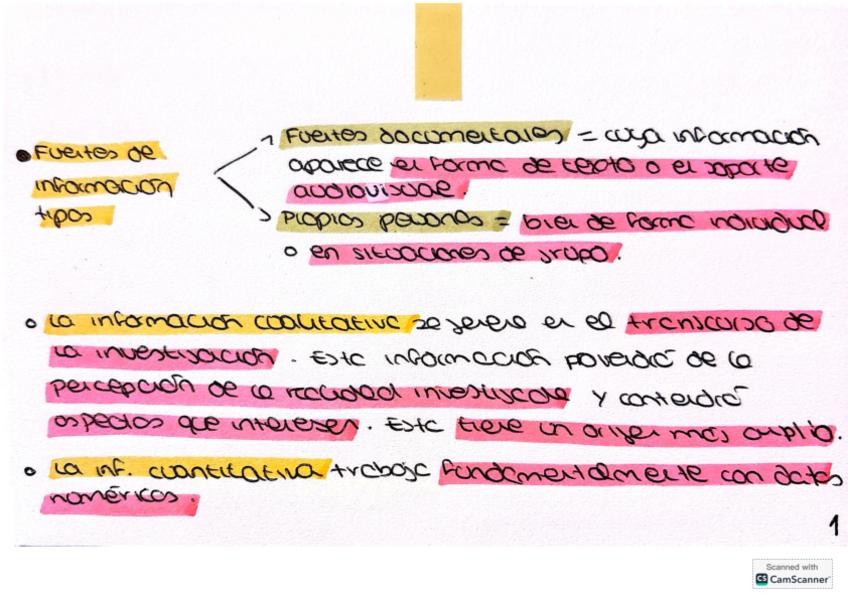 Fuentes de
información
tipos
Fuentes documentales = cuya información
aparece en forma de texto o en soporte
audiovisual.
Propias personas = bien de forma individual
o en situaciones de grupo.
La información cualitativa se genera en el transcurso de
la investigación. Esta información provendrá de la
percepción de la realidad investigada y contendrá
aspectos que interesen. Esta tiene un origen más amplio.
La inf. cuantitativa trabaja fundamentalmente con datos
numéricos.
1
Scanned with
CS CamScanner